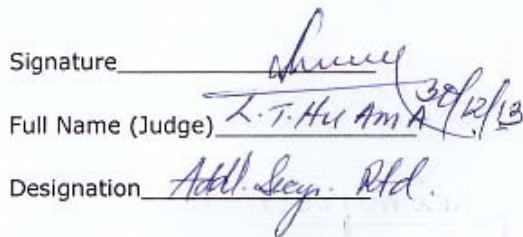 Signature
Full Name (Judge) L.T. Hu Am A 30/12/13
Designation Addl. Secy. Rtd.